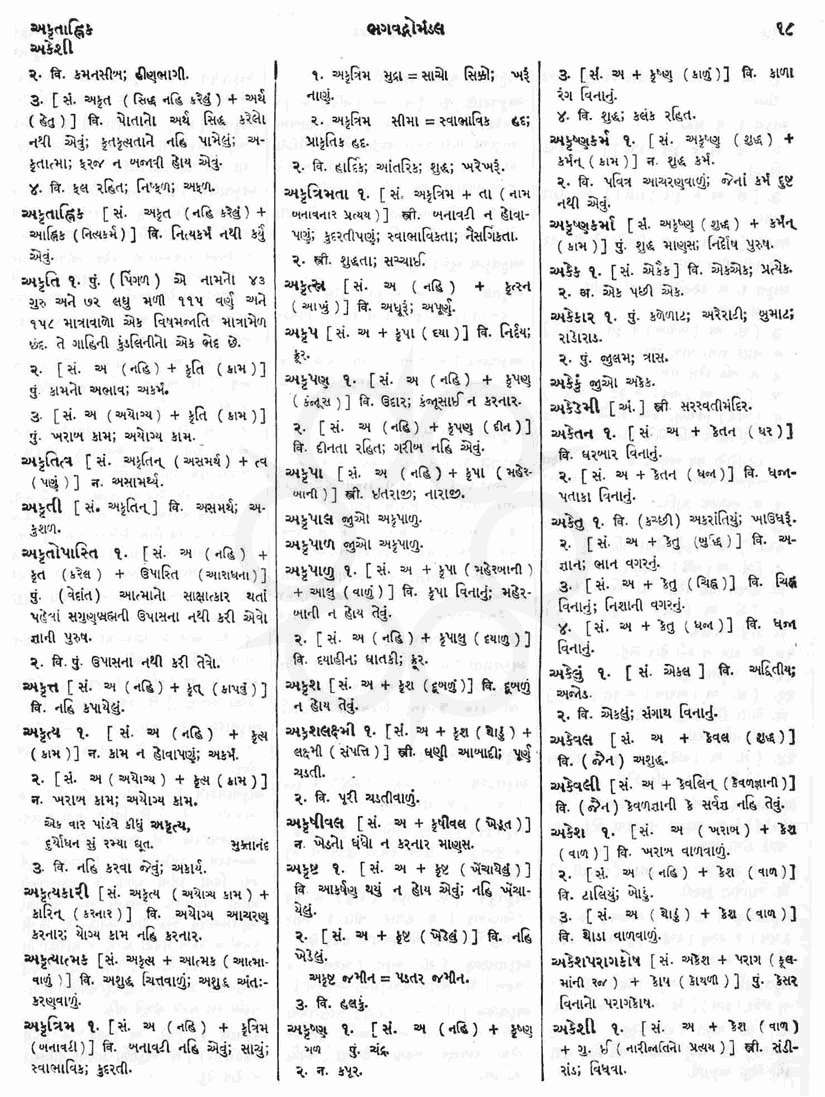 અકૃતાહ્નિક
અકેશી
ભગવદ્ગોમંડલ
૧૮
૨. વિ. કમનસીબ; હીણભાગી.
૩. [સં. અકૃત (સિદ્ધ નહિ કરેલું) + અર્થ
(હેતુ)] વિ. પોતાનો અર્થ સિદ્ધ કરેલો
નથી એવું; કૃતકૃત્યતાને નહિ પામેલું; અ-
કૃતાત્મા; ફરજ ન બજાવી હોય એવું.
૪. વિ. ફલ રહિત; નિષ્ફળ; અફળ.
અકૃતાહ્નિક [સં. અકૃત (નહિ કરેલું) +
આહ્નિક (નિત્યકર્મ)] વિ. નિત્યકર્મ નથી કર્યું
એવું.
અકૃતિ ૧. પું. (પિંગળ) એ નામનો ૪૩
ગુરુ અને ૭૨ લઘુ મળી ૧૧૫ વર્ણ અને
૧૫૮ માત્રાવાળો એક વિષમજાતિ માત્રામેળ
છંદ. તે ગાહિની કુંડલિનીનો એક ભેદ છે.
૨. [સં. અ (નહિ) + કૃતિ (કામ)]
પું. કામનો અભાવ; અકર્મ.
૩. [સં. અ (અયોગ્ય) + કૃતિ (કામ)]
પું. ખરાબ કામ; અયોગ્ય કામ.
અકૃતિત્વ [સં. અકૃતિન્ (અસમર્થ) + ત્વ
(પણું)] ન. અસામર્થ્ય.
અકૃતી [સં. અકૃતિન્] વિ. અસમર્થ; અ-
કુશળ.
અકૃતોપાસ્તિ ૧. [સં. અ (નહિ) +
કૃત (કરેલ) + ઉપાસ્તિ (આરાધના)]
પું. (વેદાંત) આત્માનો સાક્ષાત્કાર થતાં
પહેલાં સગુણબ્રહ્મની ઉપાસના નથી કરી એવો
જ્ઞાની પુરુષ.
૨. વિ. પું. ઉપાસના નથી કરી તેવો.
અકૃત્ત [સં. અ (નહિ) + કૃત્ (કાપવું)]
વિ. નહિ કપાયેલું.
અકૃત્ય ૧. [સં. અ (નહિ) + કૃત્ય
(કામ)] ન. કામ ન હોવાપણું; અકર્મ.
૨. [સં. અ (અયોગ્ય) + કૃત્ય (કામ)]
ન. ખરાબ કામ; અયોગ્ય કામ.
એક વાર પાંડવે કીધું અકૃત્ય,
દુર્યોધન સું રમ્યા દ્યૂત. મુક્તાનંદ
૩. વિ. નહિ કરવા જેવું; અકાર્ય.
અકૃત્યકારી [સં. અકૃત્ય (અયોગ્ય કામ) +
કારિન્ (કરનાર)] વિ. અયોગ્ય આચરણ
કરનાર; યોગ્ય કામ નહિ કરનાર.
અકૃત્યાત્મક [સં. અકૃત્ય + આત્મક (આત્મા-
વાળું)] વિ. અશુદ્ધ ચિત્તવાળું; અશુદ્ધ અંતઃ-
કરણવાળું.
અકૃત્રિમ ૧. [સં. અ (નહિ) + કૃત્રિમ
(બનાવટી)] વિ. બનાવટી નહિ એવું; સાચું;
સ્વાભાવિક; કુદરતી.
૧. અકૃત્રિમ મુદ્રા = સાચો સિક્કો; ખરૂં
નાણું.
૨. અકૃત્રિમ સીમા = સ્વાભાવિક હદ;
પ્રાકૃતિક હદ.
૨. વિ. હાર્દિક; આંતરિક; શુદ્ધ; ખરેખરૂં.
અકૃત્રિમતા ૧. [સં. અકૃત્રિમ + તા (નામ
બનાવનાર પ્રત્યય)] સ્ત્રી. બનાવટી ન હોવા-
પણું; કુદરતીપણું; સ્વાભાવિકતા; નૈસર્ગિકતા.
૨. સ્ત્રી. શુદ્ધતા; સચ્ચાઈ.
અકૃત્સ્ન [સં. અ (નહિ) + કૃત્સ્ન
(આખું)] વિ. અધૂરૂં; અપૂર્ણ.
અકૃપ [સં. અ + કૃપા (દયા)] વિ. નિર્દય;
ક્રૂર.
અકૃપણ ૧. [સં. અ (નહિ) + કૃપણ
(કંજૂસ)] વિ. ઉદાર; કંજૂસાઈ ન કરનાર.
૨. [સં. અ (નહિ) + કૃપણ (દીન)]
વિ. દીનતા રહિત; ગરીબ નહિ એવું.
અકૃપા [સં. અ (નહિ) + કૃપા (મહેર-
બાની)] સ્ત્રી. ઇતરાજી; નારાજી.
અકૃપાલ જુઓ અકૃપાળુ.
અકૃપાળ જુઓ અકૃપાળુ.
અકૃપાળુ ૧. [સં. અ + કૃપા (મહેરબાની)
+ આલુ (વાળું)] વિ. કૃપા વિનાનું; મહેર-
બાની ન હોય તેવું.
૨. [સં. અ (નહિ) + કૃપાલુ (દયાળુ)]
વિ. દયાહીન; ઘાતકી; ક્રૂર.
અકૃશ [સં. અ + કૃશ (દૂબળું)] વિ. દૂબળું
ન હોય તેવું.
અકૃશલક્ષ્મી ૧. [સં. અ + કૃશ (થોડું) +
લક્ષ્મી (સંપત્તિ)] સ્ત્રી. ઘણી આબાદી; પૂર્ણ
ચડતી.
૨. વિ. પૂરી ચડતીવાળું.
અકૃષીવલ [સં. અ + કૃષીવલ (ખેડૂત)]
ન. ખેડનો ધંધો ન કરનાર માણસ.
અકૃષ્ટ [સં. અ + કૃષ્ટ (ખેંચાયેલું)]
વિ. આકર્ષણ થયું ન હોય એવું; નહિ ખેંચા-
યેલું.
૨. [સં. અ + કૃષ્ટ (ખેડેલું)] વિ. નહિ
ખેડેલું.
અકૃષ્ટ જમીન = પડતર જમીન.
૩. વિ. હલકું.
અકૃષ્ણ ૧. [સં. અ (નહિ) + કૃષ્ણ
પું. ચંદ્ર.
૨. ન. કપૂર.
૩. [સં. અ + કૃષ્ણ (કાળું)] વિ. કાળા
રંગ વિનાનું.
૪. વિ. શુદ્ધ; કલંક રહિત.
અકૃષ્ણકર્મ ૧. [સં. અકૃષ્ણ (શુદ્ધ) +
કર્મન્ (કામ)] ન. શુદ્ધ કર્મ.
૨. વિ. પવિત્ર આચરણવાળું; જેનાં કર્મ દુષ્ટ
નથી એવું.
અકૃષ્ણકર્મા [સં. અકૃષ્ણ (શુદ્ધ) + કર્મન્
(કામ)] પું. શુદ્ધ માણસ; નિર્દોષ પુરુષ.
અકેક ૧. [સં. એકૈક] વિ. એકએક; પ્રત્યેક.
૨. અ. એક પછી એક.
અકેકાર ૧. પું. કળેળાટ; અરેરાટી; બુમાટ;
રાડારાડ.
૨. પું. જુલમ; ત્રાસ.
અકેકું જુઓ અકેક.
અકેડેમી [અં.] સ્ત્રી સરસ્વતીમંદિર.
અકેતન ૧. [સં. અ + કેતન (ઘર)]
વિ. ઘરબાર વિનાનું.
૨. [સં. અ + કેતન (ધજા)] વિ. ધજા-
પતાકા વિનાનું.
અકેતુ ૧. વિ. (કચ્છી) અકરાંતિયું; ખાઉધરૂં.
૨. [સં. અ + કેતુ (બુદ્ધિ)] વિ. અ-
જ્ઞાન; ભાન વગરનું.
૩. [સં. અ + કેતુ (ચિહ્ન)] વિ. ચિહ્ન
વિનાનું; નિશાની વગરનું.
૪. [સં. અ + કેતુ (ધજા)] વિ. ધજા
વિનાનું.
અકેલું ૧. [સં. એકલ] વિ. અદ્વિતીય;
અજોડ.
૨. વિ. એકલું; સંગાથ વિનાનું.
અકેવલ [સં. અ + કેવલ (શુદ્ધ)]
વિ. (જૈન) અશુદ્ધ.
અકેવલી [સં. અ + કેવલિન્ (કેવળજ્ઞાની)]
વિ. (જૈન) કેવળજ્ઞાની કે સર્વજ્ઞ નહિ તેવું.
અકેશ ૧. [સં. અ (ખરાબ) + કેશ
(વાળ)] વિ. ખરાબ વાળવાળું.
૨. [સં. અ (નહિ) + કેશ (વાળ)]
વિ. ટાલિયું; બોડું.
૩. [સં. અ (થોડું) + કેશ (વાળ)]
વિ. થોડા વાળવાળું.
અકેશપરાગકોષ [સં. અકેશ + પરાગ (ફૂલ-
માંની રજ) + કોષ (કોથળી)] પું. કેસર
વિનાનો પરાગકોષ.
અકેશી ૧. [સં. અ + કેશ (વાળ)
+ ગુ. ઈ (નારીજાતિનો પ્રત્યય)] સ્ત્રી. રાંડી-
રાંડ; વિધવા.